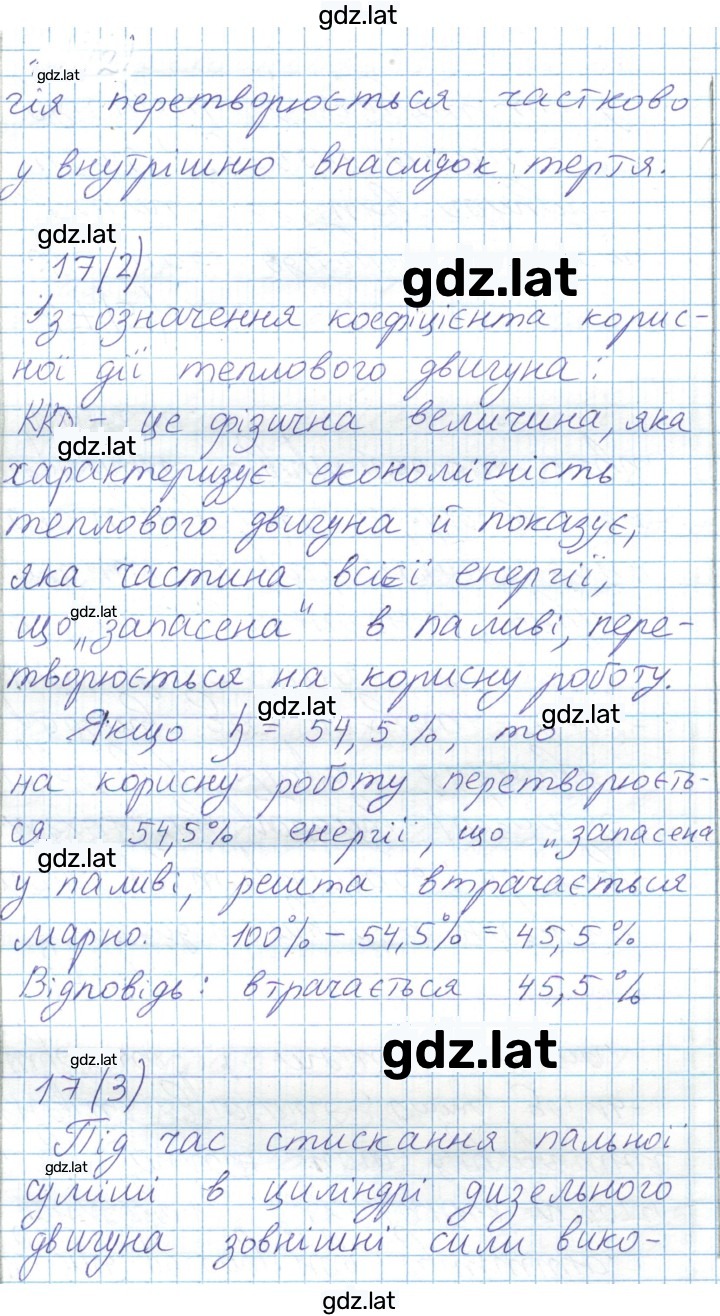 gdz.lat
gdz.lat
гія перетворюється частково
у внутрішню внаслідок тертя.
gdz.lat
17(2)
gdz.lat
Із означення коефіцієнта корис-
ної дії теплового двигуна:
ККД - це фізична величина, яка
gdz.lat
характеризує економічність
теплового двигуна й показує,
яка частина всієї енергії,
gdz.lat
що „запасена" в паливі, пере-
творюється на корисну роботу.
gdz.lat
gdz.lat
Якщо η = 54,5%, то
на корисну роботу перетворюєть-
ся 54,5% енергії, що „запасена
gdz.lat
у паливі, решта втрачається
марно. 100% - 54,5% = 45,5%
Відповідь: втрачається 45,5%
gdz.lat
gdz.lat
17(3)
Під час стискання пальної
gdz.lat
суміші в циліндрі дизельного
двигуна зовнішні сили вико-
gdz.lat